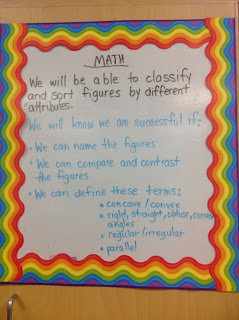 MATH
We will be able to classify
and sort figures by different
attributes.
We will know we are successful if:
• We can name the figures
• We can compare and contrast
the figures
• We can define these terms:
• concave/convex
• right, straight, obtuse,
angles
• regular/irregular
• parallel